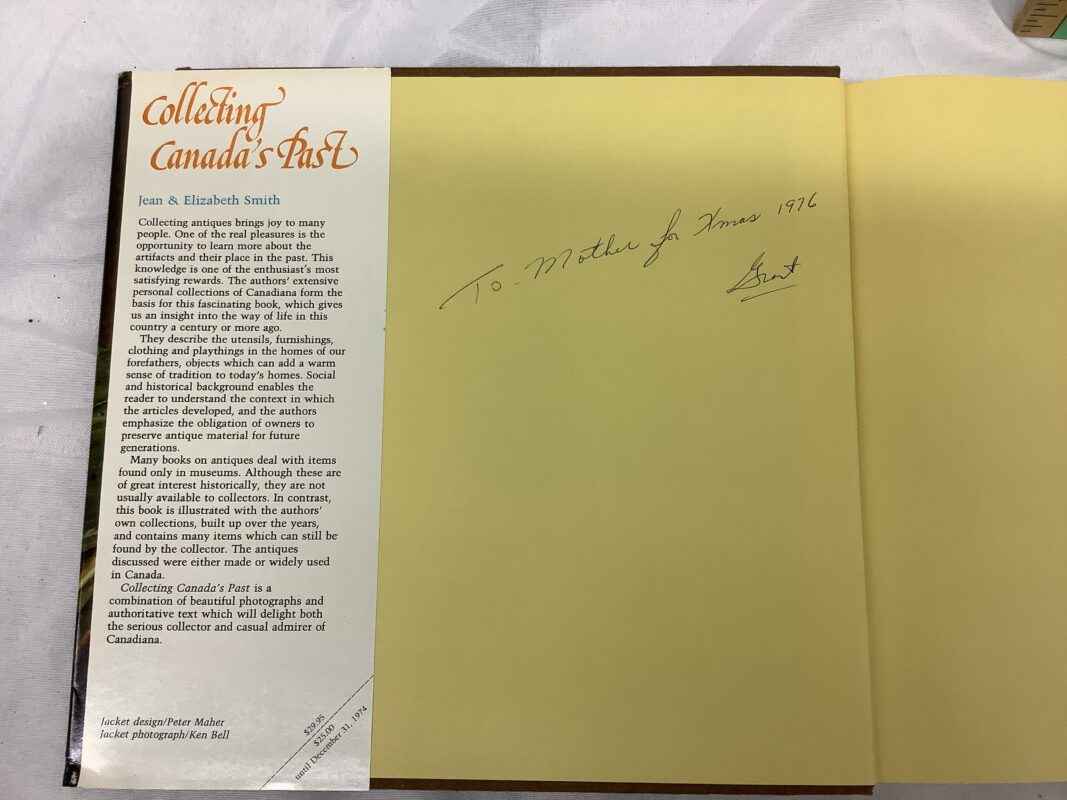 Collecting
Canada's Past
Jean & Elizabeth Smith
Collecting antiques brings joy to many
people. One of the real pleasures is the
opportunity to learn more about the
artifacts and their place in the past. This
knowledge is one of the enthusiast's most
satisfying rewards. The authors' extensive
personal collections of Canadiana form the
basis for this fascinating book, which gives
us an insight into the way of life in this
country a century or more ago.
They describe the utensils, furnishings,
clothing and playthings in the homes of our
forefathers, objects which can add a warm
sense of tradition to today's homes. Social
and historical background enables the
reader to understand the context in which
the articles developed, and the authors
emphasize the obligation of owners to
preserve antique material for future
generations.
Many books on antiques deal with items
found only in museums. Although these are
of great interest historically, they are not
usually available to collectors. In contrast,
this book is illustrated with the authors'
own collections, built up over the years,
and contains many items which can still be
found by the collector. The antiques
discussed were either made or widely used
in Canada.
Collecting Canada's Past is a
combination of beautiful photographs and
authoritative text which will delight both
the serious collector and casual admirer of
Canadiana.
Jacket design/Peter Maher
Jacket photograph/Ken Bell
$29.95
$25.00
until December 31, 1974
To - Mother for Xmas 1976
Grant